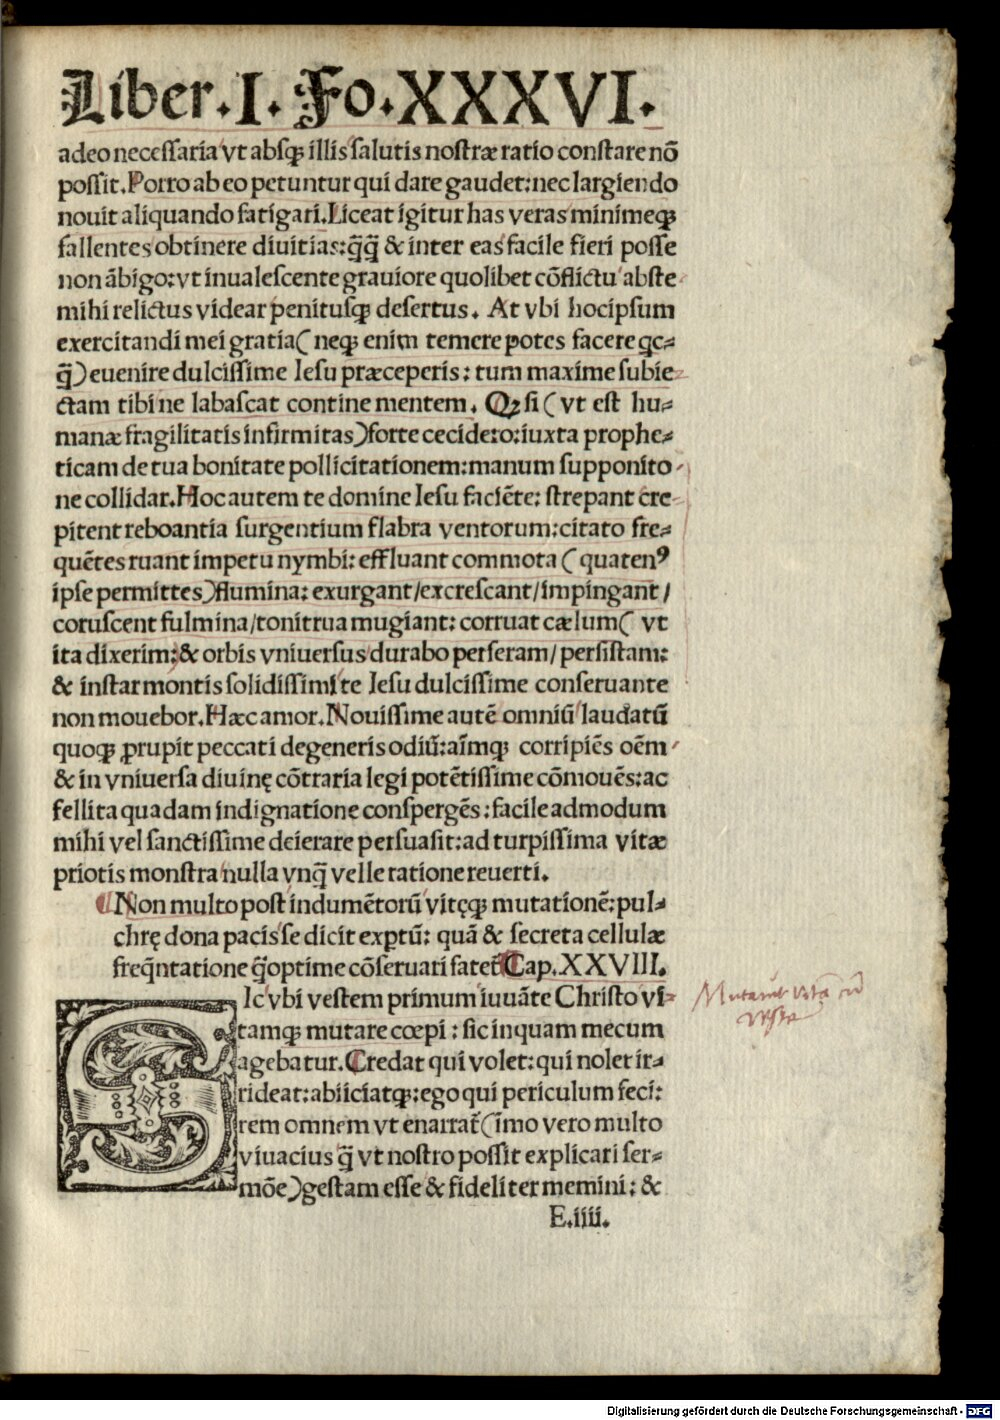 Liber.I. Fo.XXXVI.
adeo necessaria vt absqꝫ illis salutis nostræ ratio constare nō
possit. Porro ab eo petuntur qui dare gaudet: nec largiendo
nouit aliquando fatigari. Liceat igitur has veras minimeqꝫ
fallentes obtinere diuitias: q̄q̄ & inter eas facile fieri posse
non ābigo: vt inualescente grauiore quolibet cōflictu abste
mihi relictus videar penitusqꝫ desertus. At vbi hocipsum
exercitandi mei gratia( neqꝫ enim temere potes facere qc⸗
q̄) euenire dulcissime Iesu præceperis: tum maxime subie⸗
ctam tibi ne labascat contine mentem. Qꝫ si ( vt est hu⸗
manæ fragilitatis infirmitas) forte cecidero: iuxta prophe⸗
ticam de tua bonitate pollicitationem: manum supponito
ne collidar. Hoc autem te domine Iesu faciēte: strepant cre⸗
pitent reboantia surgentium flabra ventorum: citato fre⸗
quētes ruant impetu nymbi: effluant commota ( quatenꝰ
ipse permittes) flumina: exurgant/excrescant/impingant/
coruscent fulmina/tonitrua mugiant: corruat cælum( vt
ita dixerim: & orbis vniuersus durabo perseram/persistam:
& instar montis solidissimi te Iesu dulcissime conseruante
non mouebor. Hæc amor. Nouissime autē omniū laudatū
quoqꝫ ꝓrupit peccati degeneris odiū: aīmqꝫ corripiēs oēm
& in vniuersa diuinę cōtraria legi potētissime cōmouēs: ac
fellita quadam indignatione conspergēs: facile admodum
mihi vel sanctissime deierare persuasit: ad turpissima vitæ
priotis monstra nulla vnq̄ velle ratione reuerti.
¶Non multo post indumētorū vitęqꝫ mutationē: pul⸗
chrę dona pacis se dicit exꝑtū: quā & secreta cellulæ
freq̄ntatione q̄optime cōseruari fatet̄ Cap.XXVIII.
SIc vbi vestem primum iuuāte Christo vi⸗
tamqꝫ mutare cœpi: sic inquam mecum
agebatur. Credat qui volet: qui nolet ir⸗
rideat: abiiciatqꝫ: ego qui periculum feci:
rem omnem vt enarrat̄ (īmo vero multo
viuacius q̄ vt nostro possit explicari ser⸗
mōe) gestam esse & fideliter memini: &
E.iiii.
Mutauit vitā cū
veste
Digitalisierung gefördert durch die Deutsche Forschungsgemeinschaft - DFG